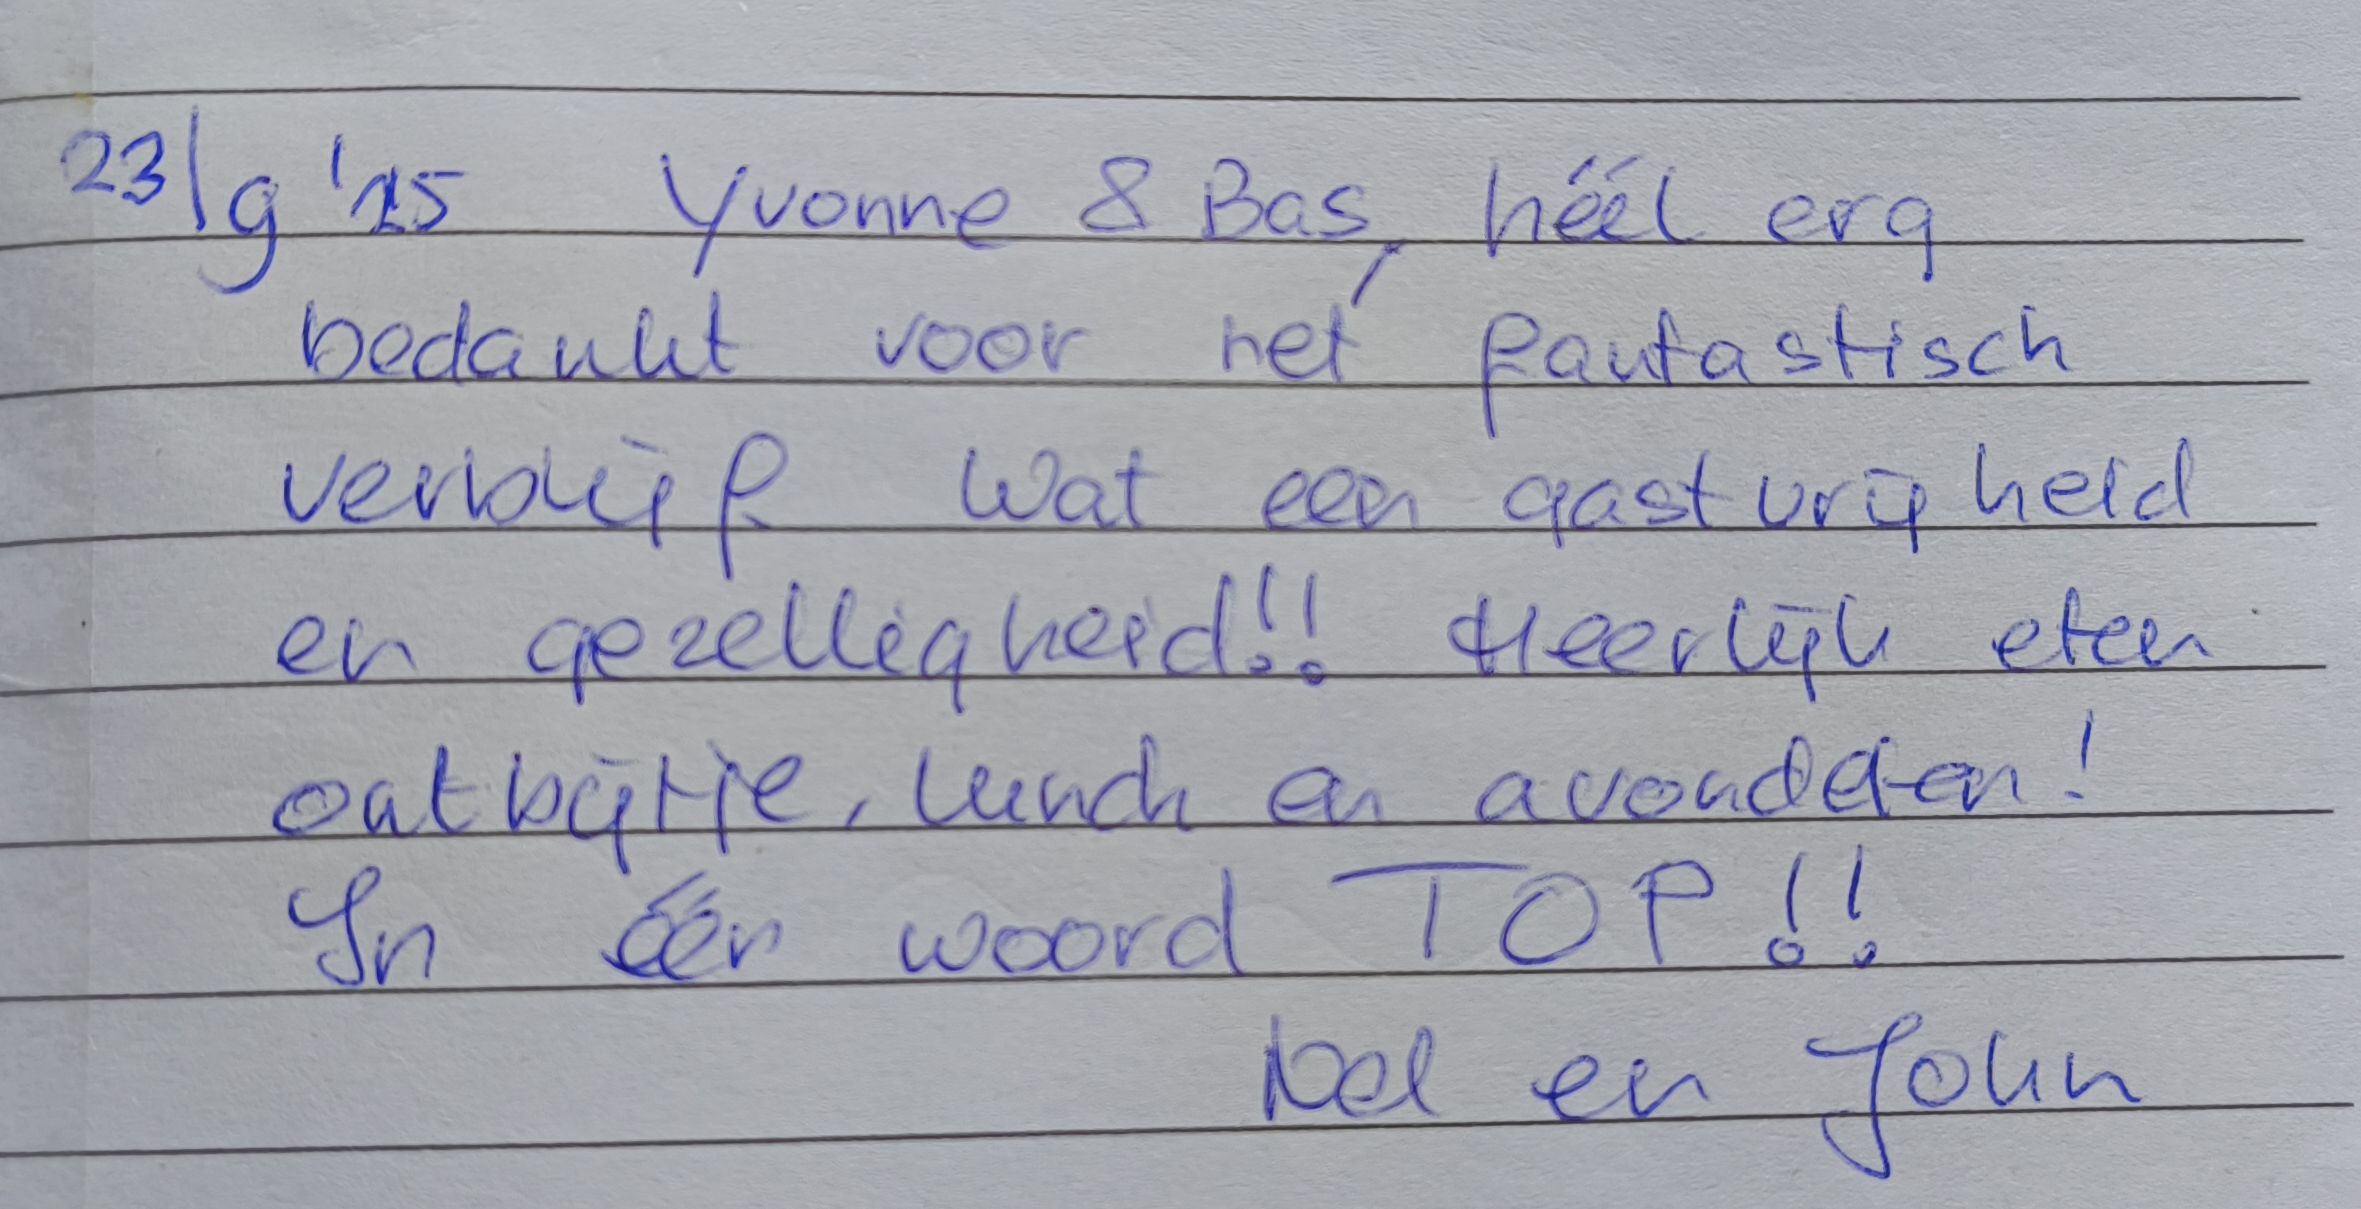 23/9 '25 Yvonne & Bas, héél erg
bedankt voor het fantastisch
verblijf Wat een gastvrijheid
en gezelligheid!! Heerlijk eten
ontbijtje, lunch en avondeten!
In één woord TOP!!
Nel en John